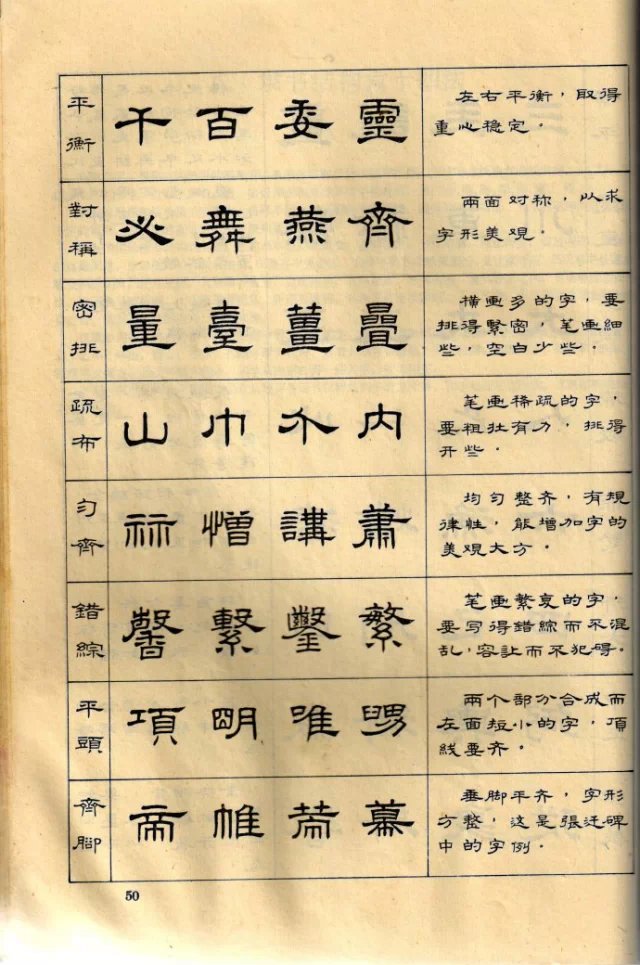 平衡
千百委靈
左右平衡，取得
重心稳定。
對稱
必舞燕齊
兩面对称，以求
字形美观。
密排
量臺薑疊
横画多的字，要
排得緊密，笔画細
些，空白少些。
疏布
山巾介内
笔画稀疏的字，
要粗壮有力，排得
开些。
匀齊
憎講蕭
均匀整齐，有規
律性，能增加字的
美观大方。
錯綜
馨繫鑿繁
笔画繁复的字，
要写得錯綜而不混
乱，容让而不犯碍。
平頭
項明唯
兩个部分合成而
左面短小的字，頂
线要齐。
齊腳
帝帷幕
垂脚平齐，字形
方整，这是張迁碑
中的字例。
50